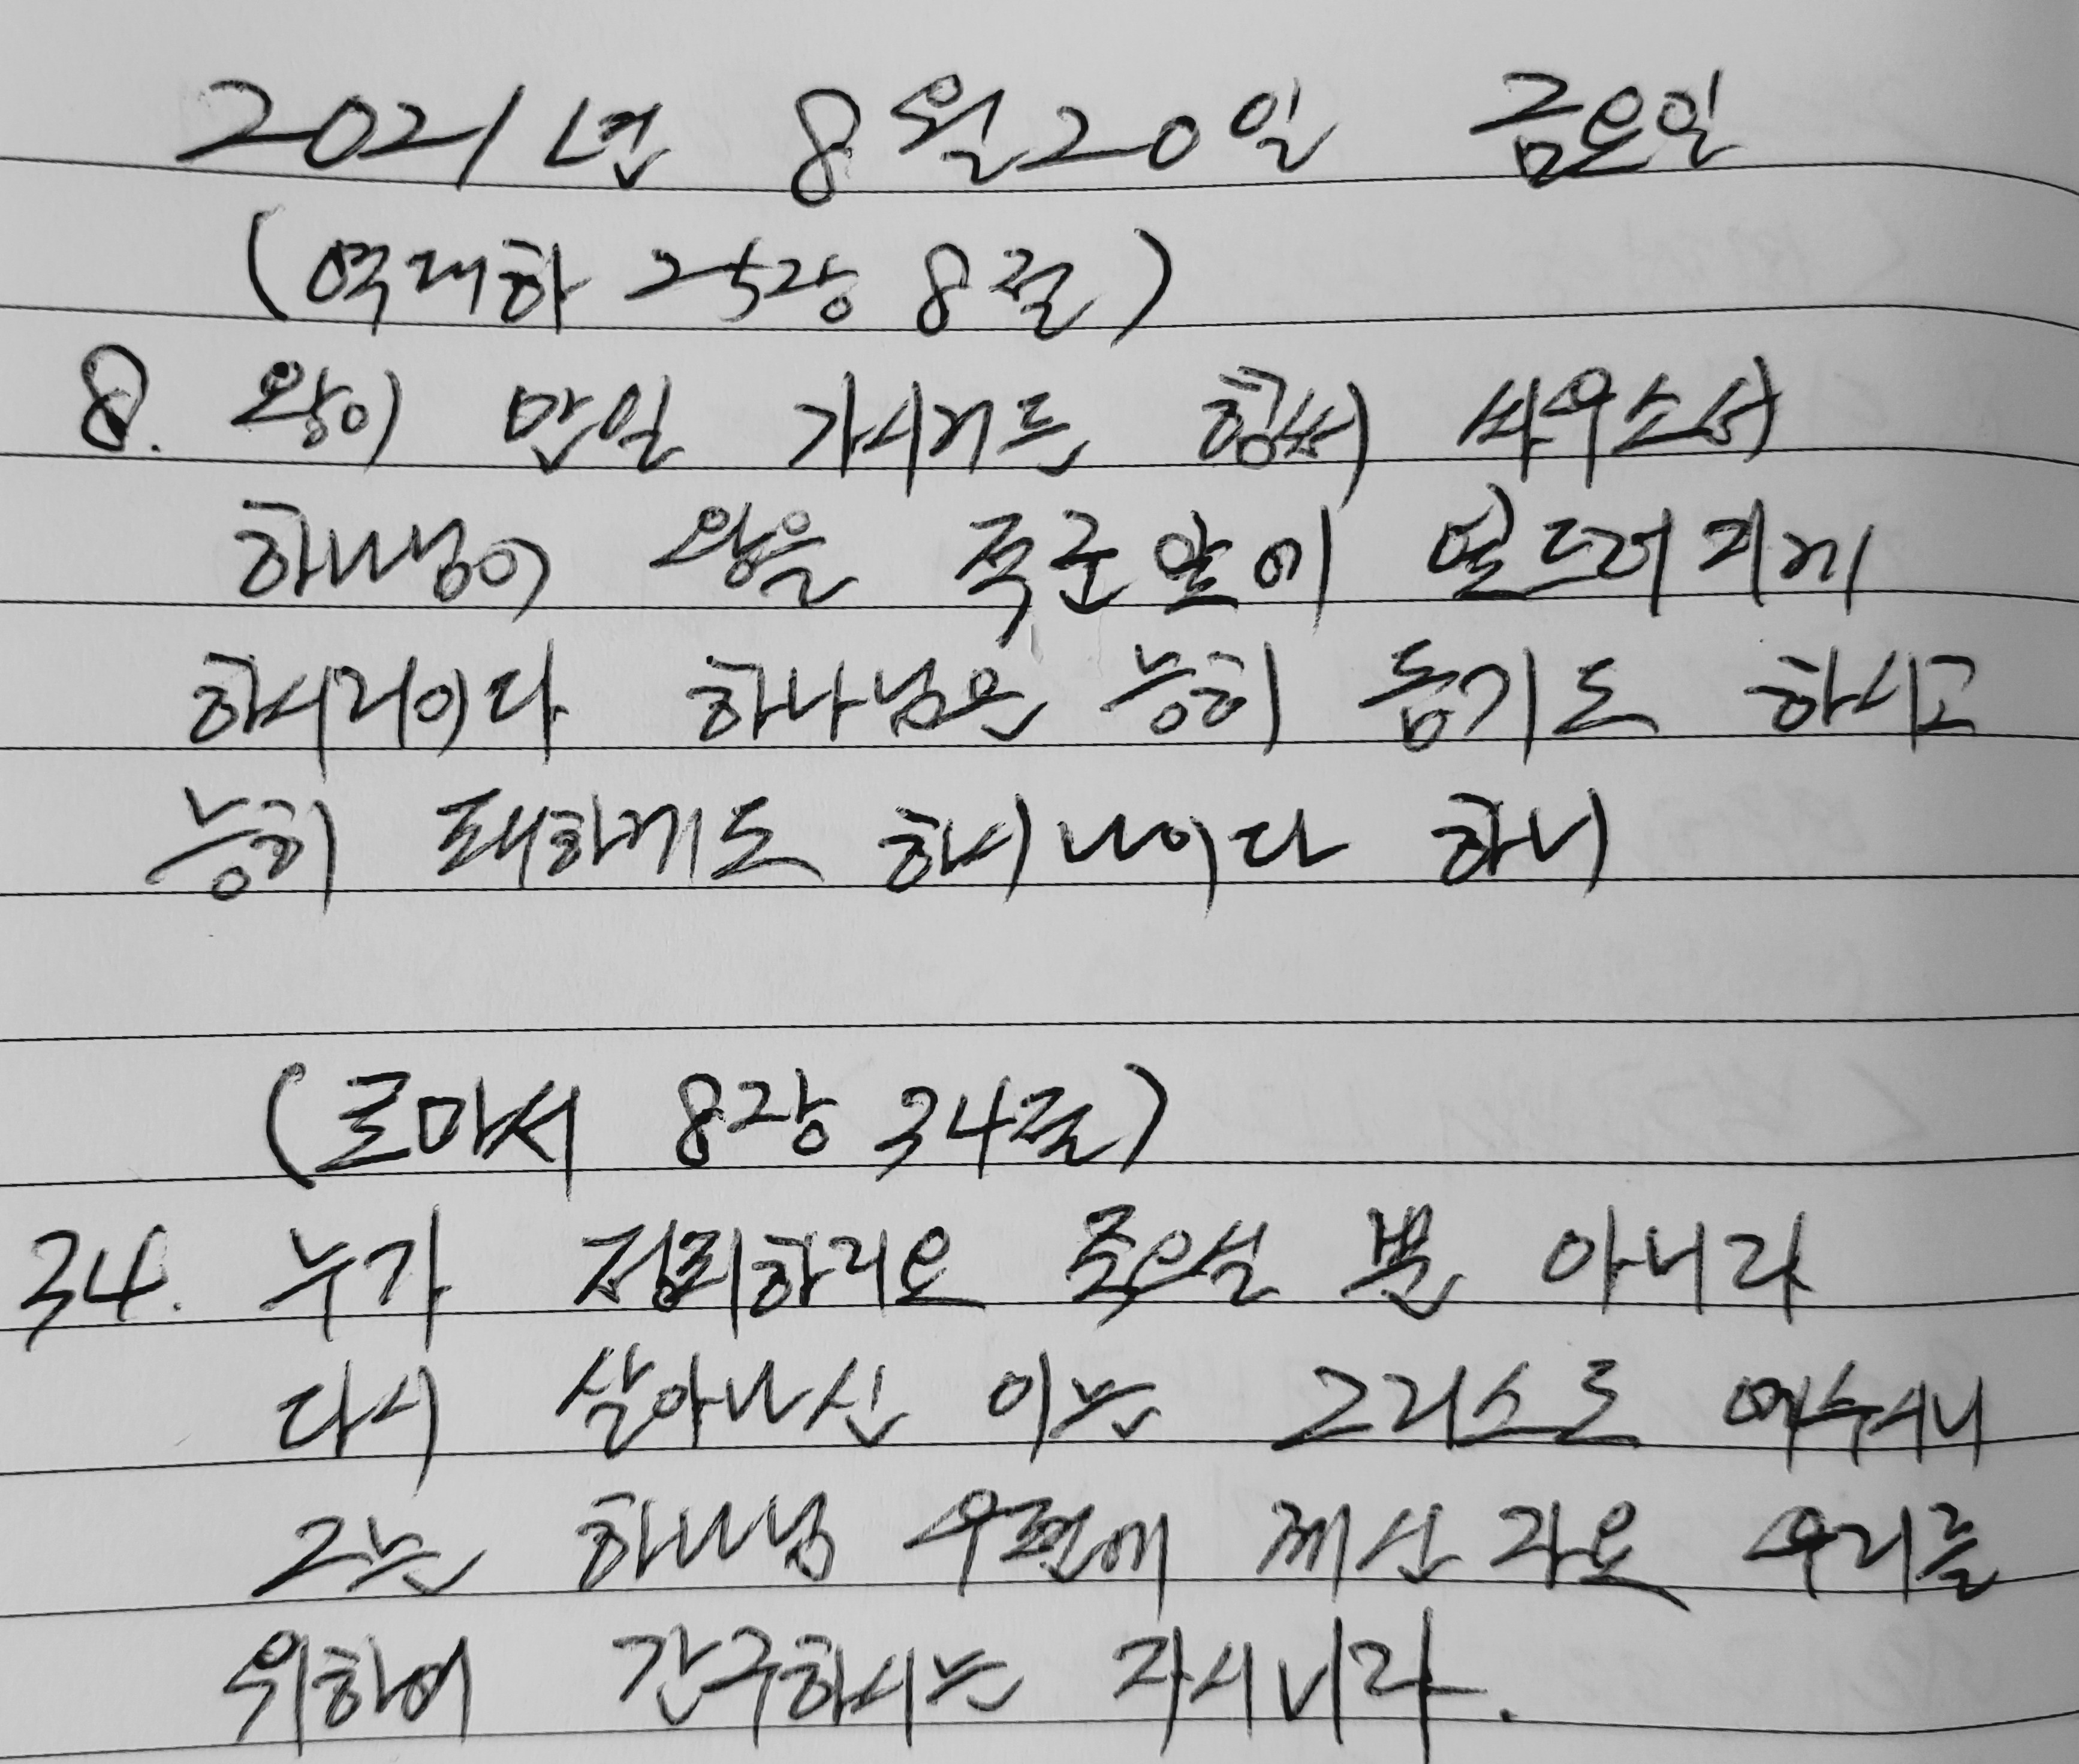 2021년 8월 20일 금요일
(역대하 25장 8절)
8. 왕이 만일 가시거든 힘써 싸우소서
하나님이 왕을 적군 앞에 엎드러지게
하시리이다 하나님은 능히 돕기도 하시고
능히 패하게도 하시나이다 하니
(로마서 8장 34절)
34. 누가 정죄하리요 죽으실 뿐 아니라
다시 살아나신 이는 그리스도 예수시니
그는 하나님 우편에 계신 자요 우리를
위하여 간구하시는 자시니라.